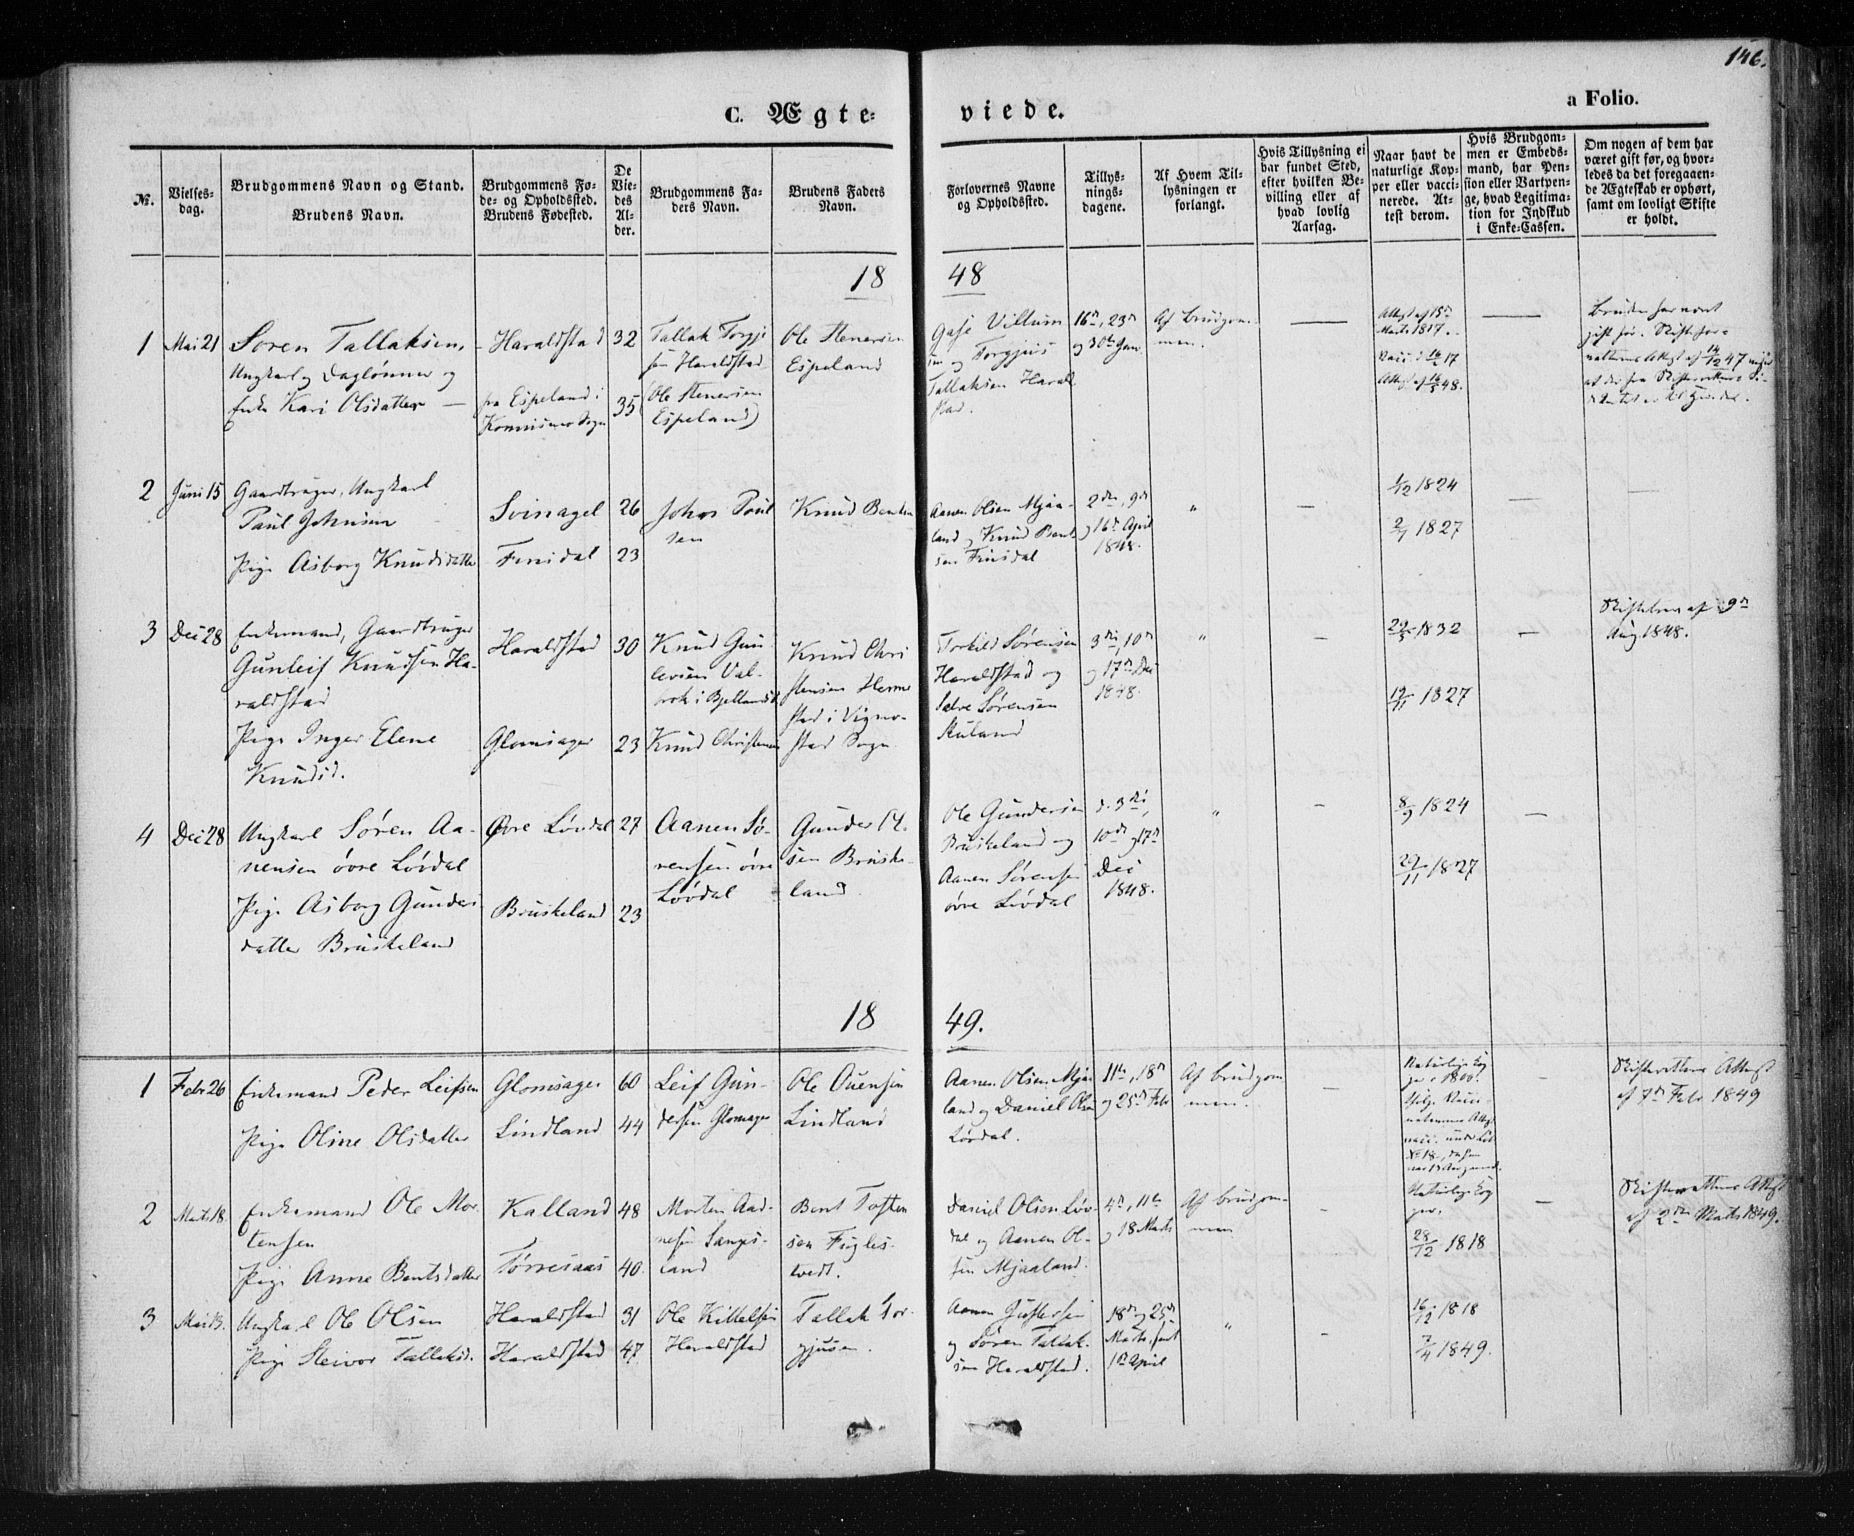 146.
C. Ægte-
viede.
a Folio.
№.
Vielses-
dag.
Brudgommens Navn og Stand.
Brudens Navn.
Brudgommens Fø-
de- og Opholdssted.
Brudens Fødested.
De
Vie-
des
Al-
der.
Brudgommens Fa-
ders Navn.
Brudens Faders
Navn.
Forlovernes Navne
og Opholdssted.
Tillys-
nings-
dagene.
Af Hvem Til-
lysningen er
forlangt.
Hvis Tillysning ei
har fundet Sted,
efter hvilken Be-
villing eller af
hvad lovlig
Aarsag.
Naar havt de
naturlige Kop-
per eller vacci-
nerede. At-
test derom.
Hvis Brudgom-
men er Embeds-
mand, har Pen-
sion eller Vartpen-
ge, hvad Legitima-
tion for Indskud
i Enke-Cassen.
Om nogen af dem har
været gift før, og hvor-
ledes da det foregaaen-
de Ægteskab er ophørt,
samt om lovligt Skifte
er holdt.
1848
1
Mai 21
Søren Tallaksen,
Ungkarl og Daglønner og
Enke Kari Olsdatter —
Haraldstad
fra Espeland i
Sogn
32
35
Tallak Torgju
sen Haraldstad
(Ole Stenersen
Espeland)
Ole Stenersen
Espeland
Villum
sen og Torgjuis
Tallaksen Harald
stad.
16de, 23de
og 30te Jan
Af Brudgom-
men.
Attest af 15de
Marts 1817.
Vacc. 17
48.
Bruden har været
gift før. Skiftefor-
valterens Attest af 14/12 47
2
Juni 15
Gaardbruger, Ungkarl
Paul Johnsen
Pige Asborg Knudsdatter
Svinagel
Finsdal
26
23
John Paul
sen
Knud Bentsen
Aanen Olsen Mjaa-
land og Knud Bent
sen Finsdal
2den, 9de
og 16de April
1848.
"
1/12 1824
2/7 1827
3
Dec 28
Enkemand, Gaardbruger
Gunleif Knudsen Ha-
raldstad
Pige Inger Elene
Knudsd.
Haraldstad
Glomsager
30
23
Knud Gun
levsen Val-
brok i Bjelland
Knud Christensen
Knud Chri
stensen Homme
stad i Vigmo-
stad Sogn
Torkild Sørensen
Haraldstad og
Salve Sørensen
Stuland
3die, 10de
og 17de Dec
1848.
"
29/5 1832
19/11 1827
Skiftebrev af 9de
Aug 1848.
4
Dec 28
Ungkarl Søren Aa-
nensen øvre Løvdal
Pige Asborg Gunders
datter Bruskeland
Øvre Løvdal
Bruskeland
27
23
Aanen Sø-
rensen øvre
Løvdal
Gunder
sen Bruske-
land.
Ole Gundersen
Bruskeland og
Aanen Sørensen
øvre Løvdal
d. 3die,
10de og 17de
Dec
1848.
"
8/9 1824
29/11 1827
1849.
1
Febr 26
Enkemand Peder Leifsen
Pige Oline Olsdatter
Glomsager
Lindland
60
44
Leif Gun-
dersen Glomsager
Ole Ouensen
Lindland
Aanen Olsen Mjaa
land og Daniel Olsen
Løvdal.
11te, 18de
og 25de Febr
Af Brudgom
men.
Naturlige Kop
per i 1800.
Skifterettens Attest
af 7de Febr 1849
2
Marts 18.
Enkemand Ole Mor-
tensen
Pige Anne Bentsdatter
Kalland
Tørresaas
48
40.
Morten Aad-
nesen Langes-
land
Bent Tosten
sen Fugles-
tvedt.
Daniel Olsen Løv-
dal og Aanen Ol-
sen Mjaaland.
4de, 11te
og 18 Marts
Af Brudgom-
men
Naturlige Kop
per,
28/12 1818
Skifterettens Attest
af 2den Marts 1849.
3
Mai 13.
Ungkarl Ole Olsen
Pige Steivor Tallaksd.
Haraldstad
Haraldstad
31
47
Ole Kittelsen
Haraldstad
Tallak Tor
gjusen.
Aanen Gustersen
og Søren Tallak-
sen Haraldstad.
18de og 25de
Marts, samt
1ste April
"
16/12 1818
7/4 1849.